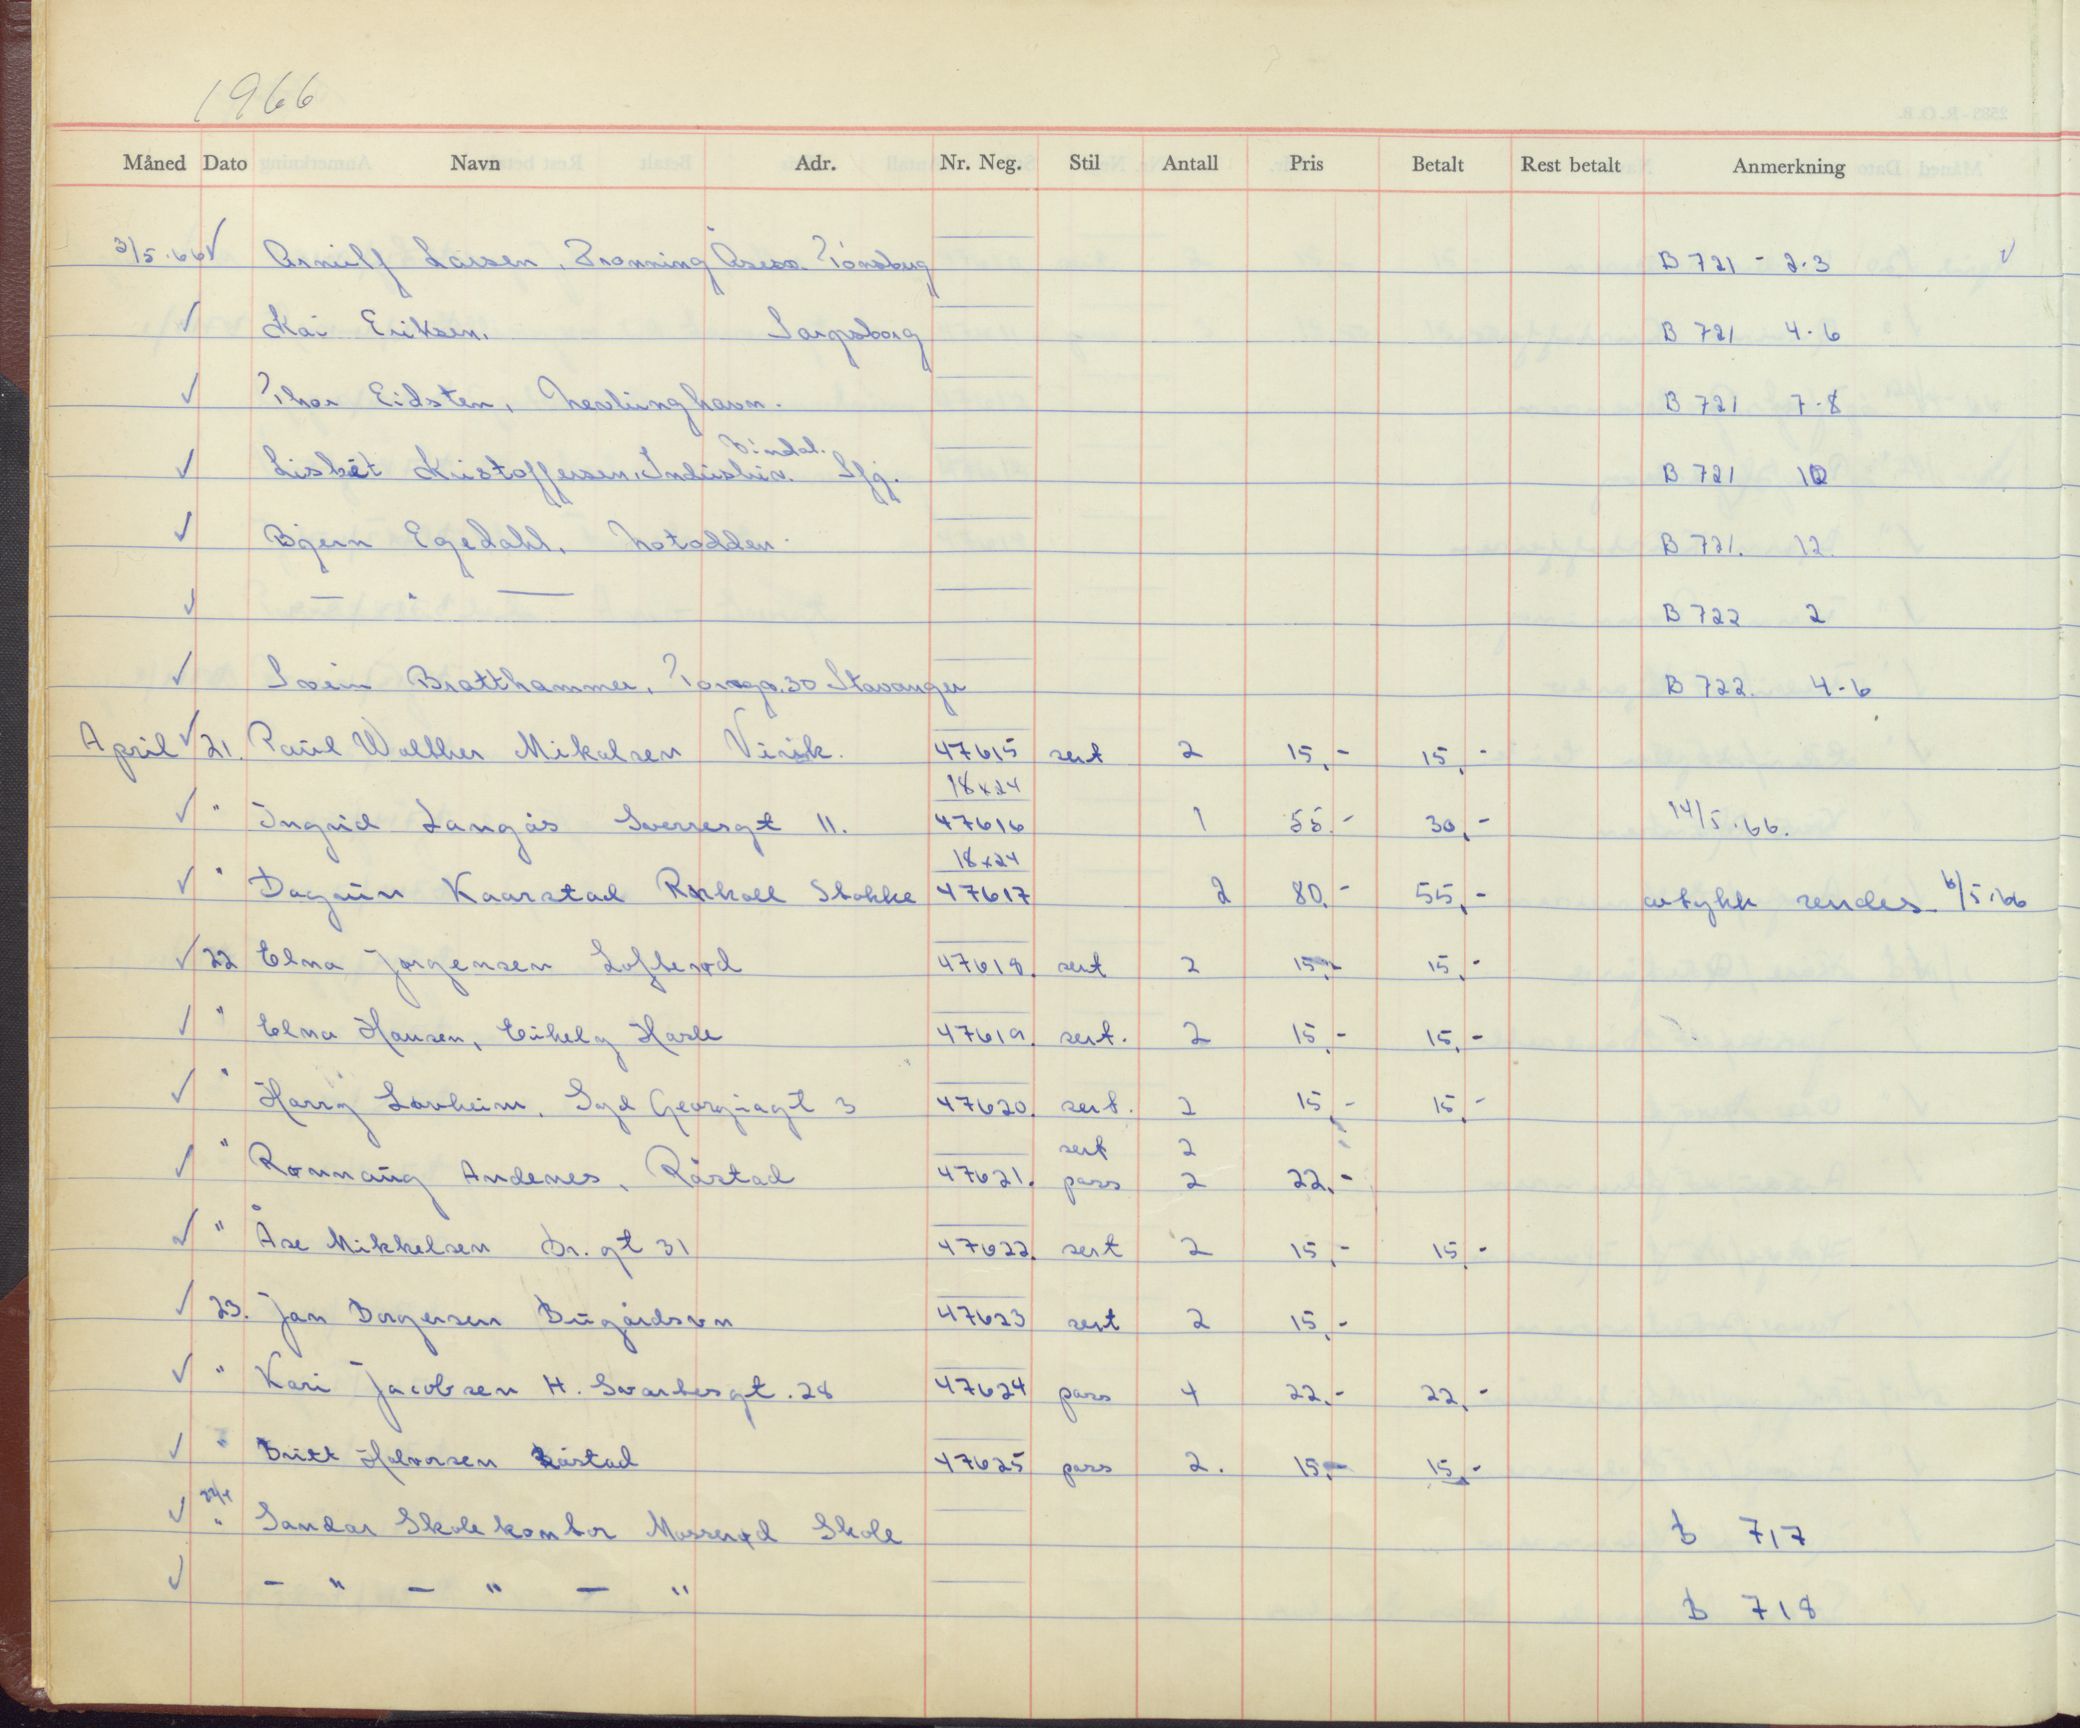 1966
Måned Dato Navn Adr. Nr. Neg. Stil Antall Pris Betalt Rest betalt Anmerkning
3/5.66 ✓ Arnulf Larsen, Dronning Åsesv. Tønsberg B 721 - 2-3 ✓
✓ Kai Eriksen, Sarpsborg B 721 4-6
✓ Thor Eidsten, Nevlunghavn. B 721 7-8
Bindal.
✓ Lisbet Kristoffersen, Industriv. Sfj. B 721 10
✓ Bjørn Egedahl, Notodden. B 721. 12.
✓ — " — B 722 2
✓ Svein Bratthammer, 30 Stavanger B 722. 4-6
April ✓ 21. Paul Walther Mikalsen Virik. 47615 sert 2 15,- 15,-
18x24
✓ " Ingrid Langås Sverresgt 11. 47616 1 55.- 30,- 14/5.66.
18x24
✓ " Dagrun Kaarstad Stokke 47617 2 80.- 55,- avtykk sendes 6/5.66
✓ 22 Elna Jørgensen Lofterød 47618. sert 2 15,- 15,-
✓ " Elna Hansen, Eikelg Hasle 47619. sert. 2 15,- 15,-
✓ " Harry Løvheim, Syd Georgiagt 3 47620. sert. 2 15,- 15,-
sert 2
✓ " Rønnaug Andenes, Råstad 47621. pass 2 22,-
✓ " Åse Mikkelsen Dr. gt 31 47622. sert 2 15,- 15,-
✓ 23. Jan Borgersen Bugårdsvn 47623 sert 2 15,-
✓ " Kari Jacobsen H. Svartesgt. 28 47624 pass 4 22,- 22,-
✓ " Britt Halvorsen Råstad 47625 pass 2. 15,- 15,-
✓ " Sandar Skolekontor Mosserød Skole B 717
✓ — " — " — " B 718